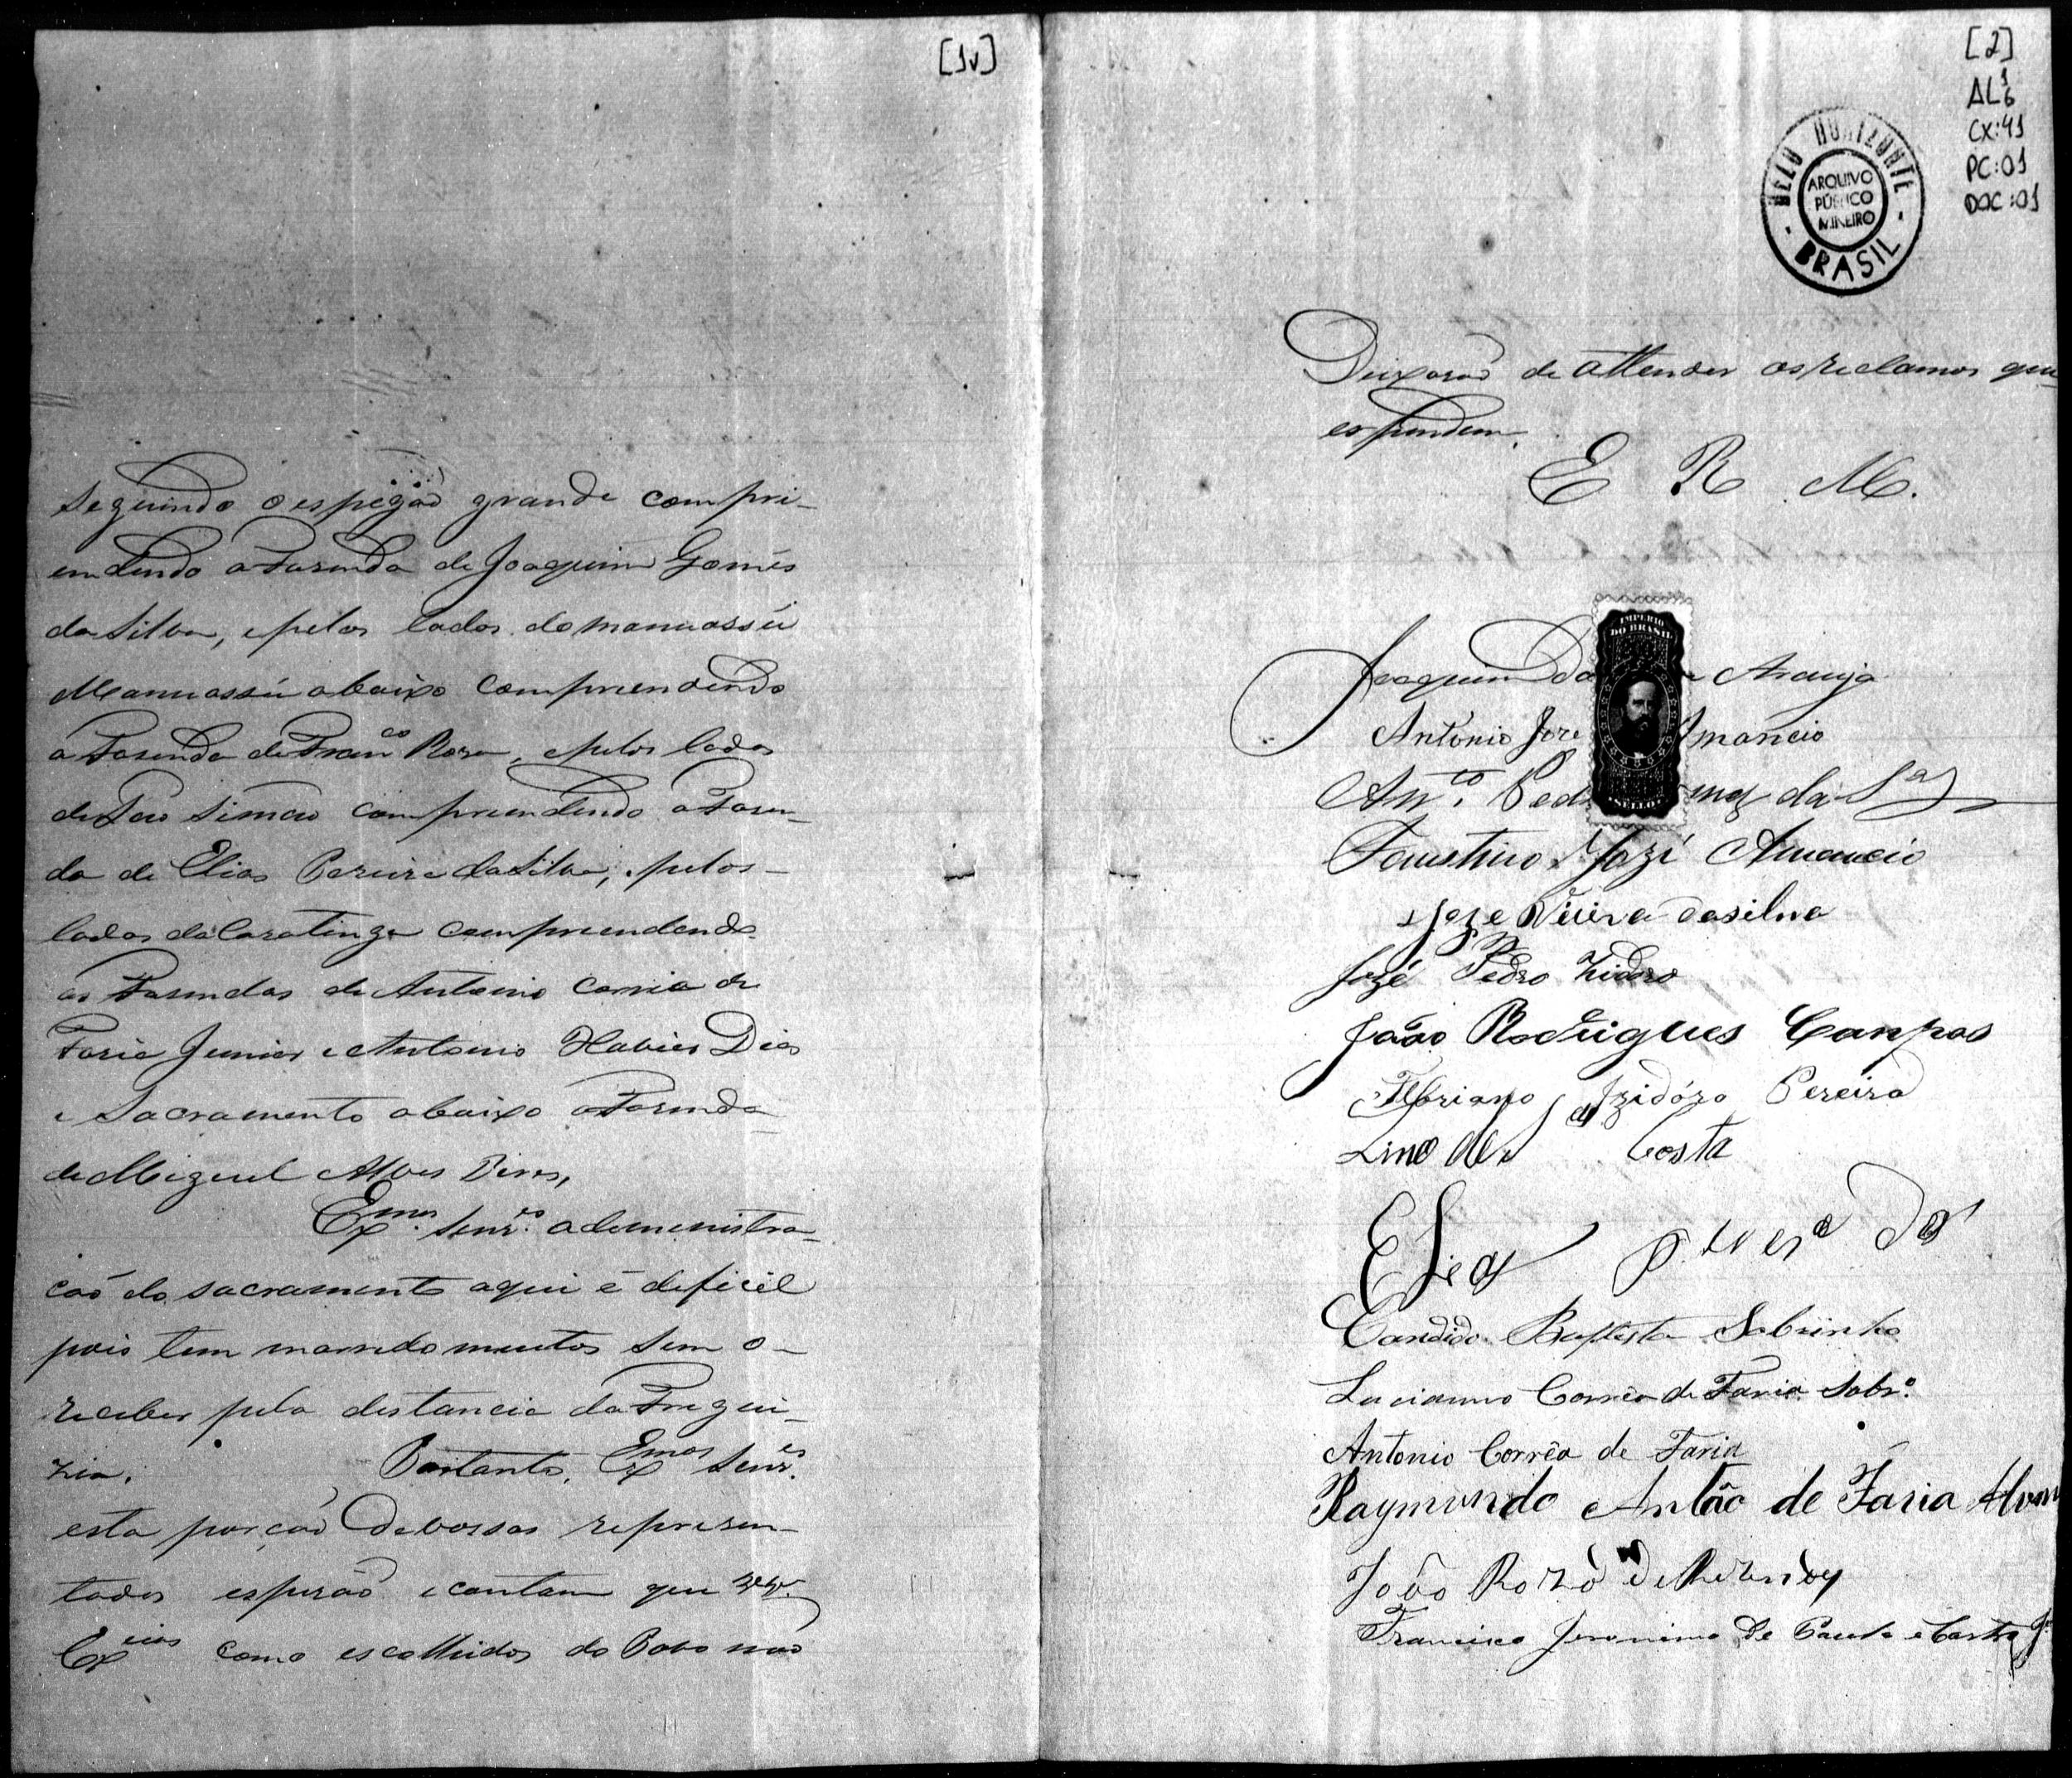 [1v]
seguindo o espigão grande compri-
endendo a Fasenda de Joaquim Gomes
da Silva, e pelos lados do manuassú
Manuassú abaixo compriendendo
a Fasenda de Fran.co Rosa, e pelos lados
de Pao Simão compriendendo a Fasen-
da de Elias Pereira da Silva, e pelos
lados do Caratinga compriendendo
as Fasendas de Antonio Correia de
Faria Junior e Antonio Havier Dias
e Sacramento abaixo a Fasenda
de Miguel Alves Pires,
Exmos. Senr.es aademenistra-
cão do sacramento aqui é deficil
pois tem morrido muitos sem o-
receber pela distancia da Fregui-
zia. Portanto, Exmos Senr.es
esta porção de vossos represen-
tados esperão e contam que VV.
Ex.cias como escolhidos do Povo não
[2]
AL 1 6
CX:41
PC:01
DOC:01
BELO HORIZONTE
ARQUIVO
PÚBLICO
MINEIRO
- BRASIL -
Deixarão de attender os reclamos que
espendem.
E R M.
IMPERIO
DO BRASIL
Joaquim Araujo
Antonio Joze Amancio
An.to Ped da S.a
SELLO
Faustino Jozé Amancio
Joze Vieira da silva
Jozé Pedro Izidoro
João Rodrigues Canpos
Izidóro Pereira
Lino de Costa
Elias
Candido Baptista Sobrinho
Lucianno Corrêa de Faria Sobr.o
Antonio Corrêa de Faria
Raymundo Antão de Faria
João
Francisco Jeronimo de Paula e Castro Jr